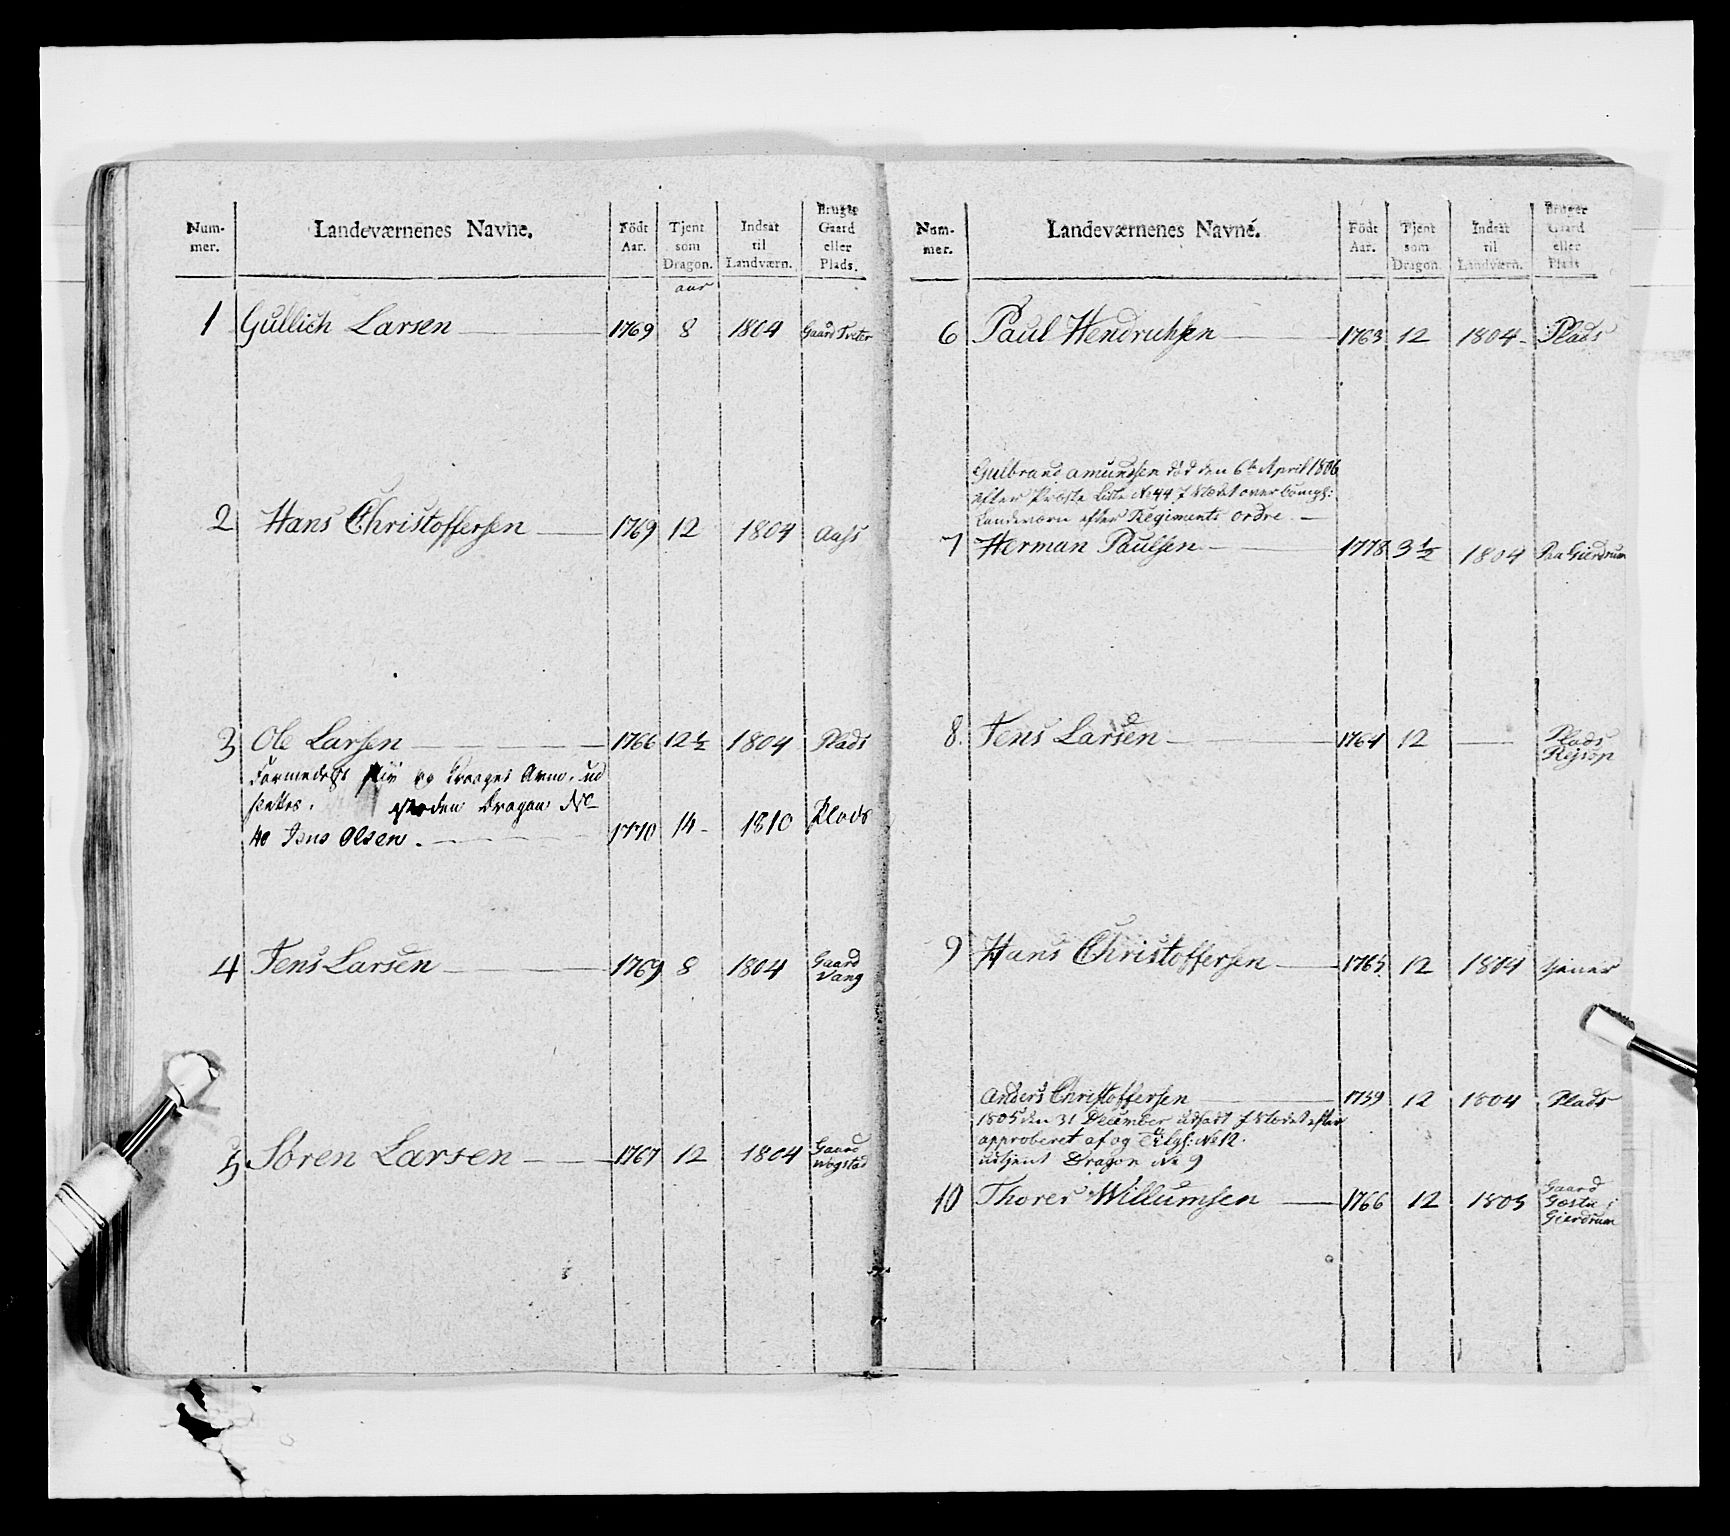 Num-
mer.
Landeværnenes Navne.
Födt
Aar.
Tjent
som
Dragon.
Indsat
til
Landværn.
Brugte
Gaard
eller
Plads.
aar
1 Gullich Larsen 1769 8 1804 Gaard Tveter
2 Hans Christoffersen 1769 12 1804 Aass
3 Ole Larsen 1766 12½ 1804 Plads
Formedelst og Arm, ud
settes. Dragon No
40 Jens Olsen. 1770 14 1810 Plads
4 Jens Larsen 1769 8 1804 Gaard
Vang
5 Søren Larsen 1767 12 1804 Gaard
Wogstad
Num-
mer.
Landeværnenes Navne.
Födt
Aar.
Tjent
som
Dragon.
Indsat
til
Landværn.
Bruger
Gaard
eller
Plads
6 Paul Hendrichsen 1763 12 1804 Plads
Gulbrand Amundsen död den 6te April 1806
efter Liste No 44
Landeværn efter Regiments ordre.
7 Herman Paulsen 1778 3½ 1804 Paa Gierdrum
8. Jens Larsen 1764 12 Plads
9 Hans Christoffersen 1765 12 1804 tjener
Anders Christoffersen 1759 12 1804 Plads
1805 den 31 December udsadt efter
approberet af og No 12.
udtjent Dragon No 9
10 Thorer Willumsen 1766 12 1805 Gaard
i
Gierdrum